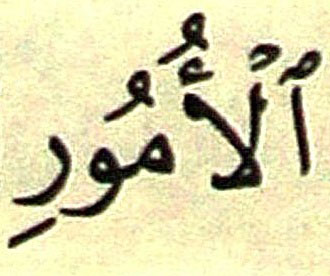 ٱلْأُمُورِ